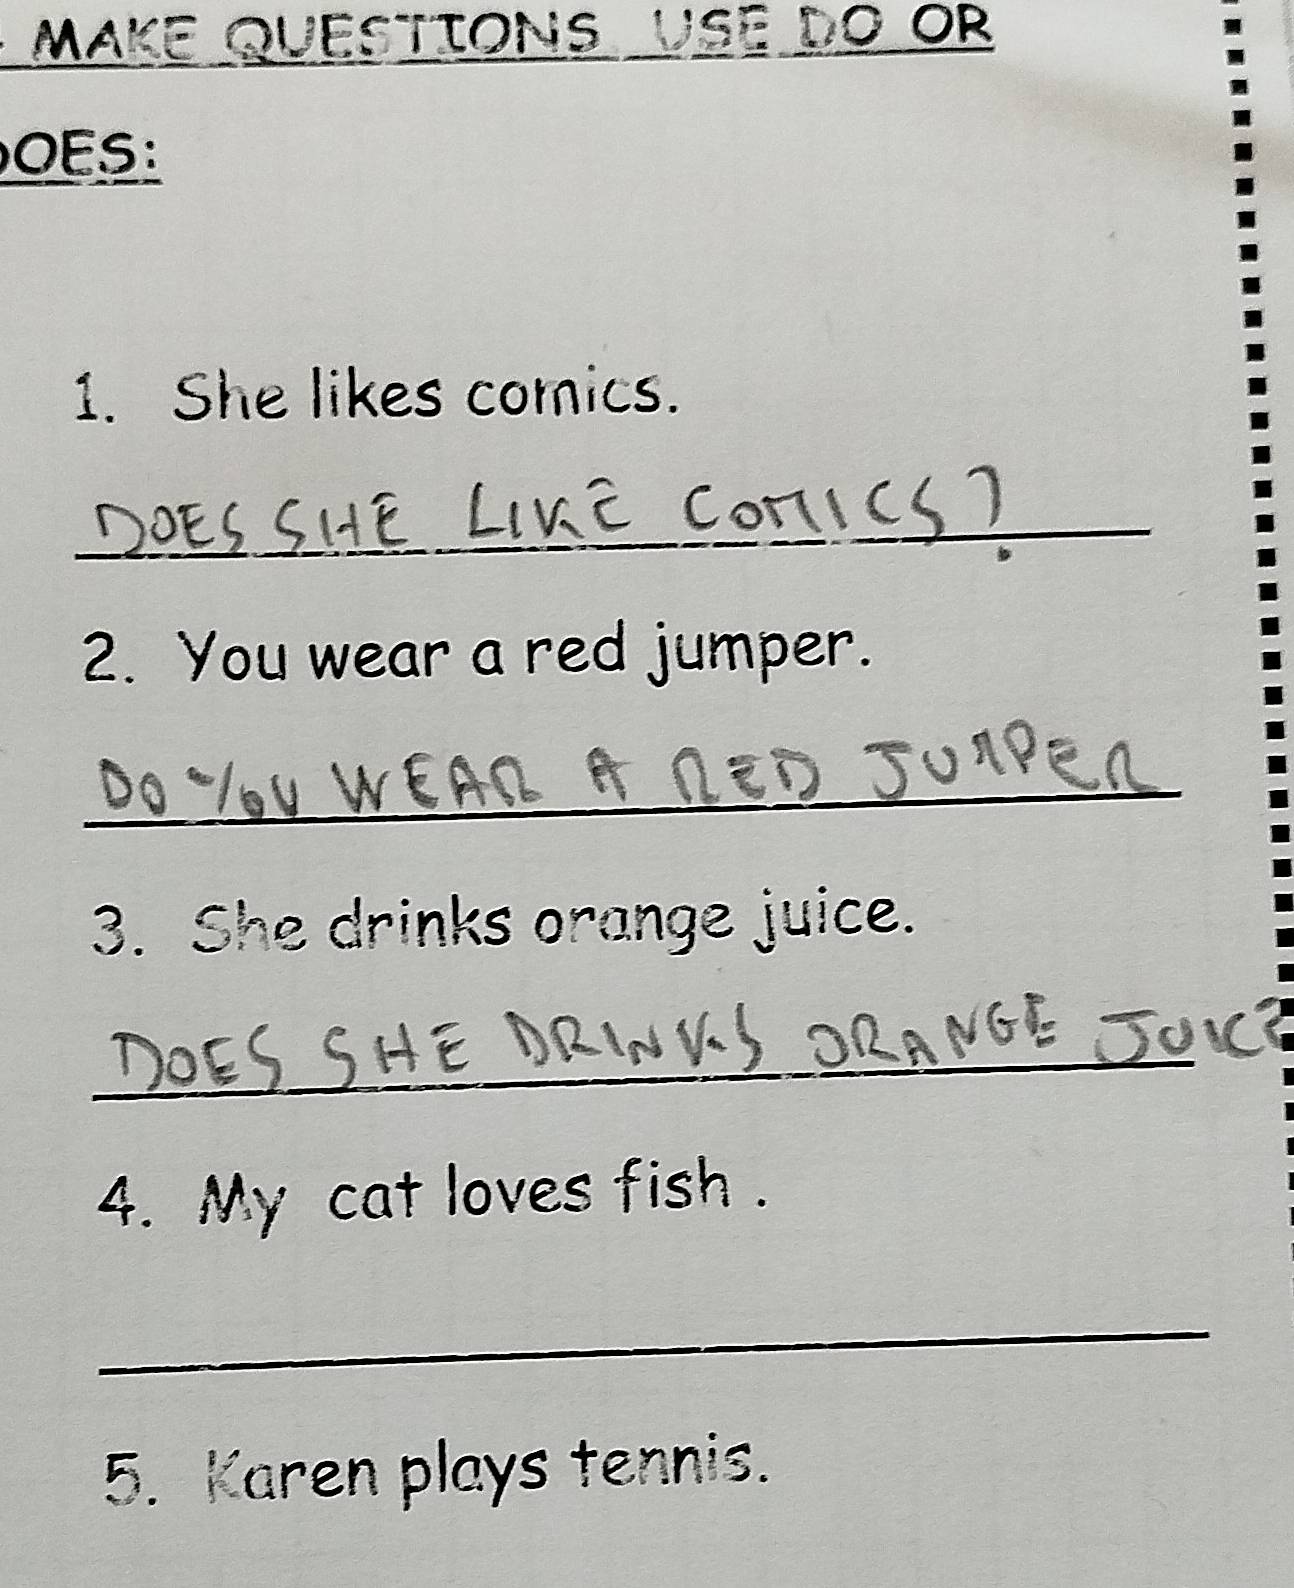 MAKE QUESTIONS USE DO OR
DOES:
1. She likes comics.
DOES SHE LIKE COMICS?
2. You wear a red jumper.
DO YOU WEAR A RED JUMPER
3. She drinks orange juice.
DOES SHE DRINKS ORANGE
4. My cat loves fish .
5. Karen plays tennis.